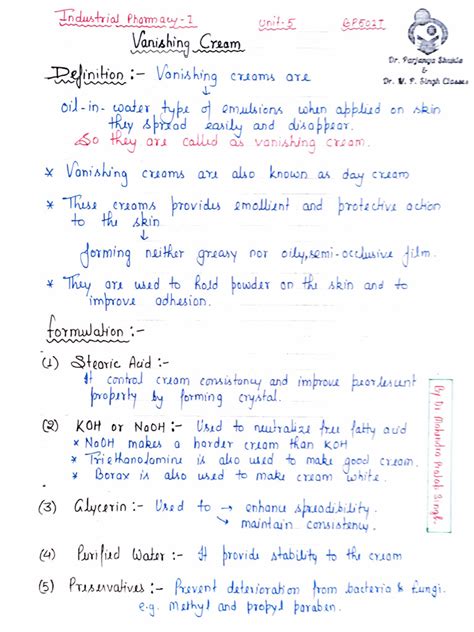 Industrial Pharmacy-I Unit-5 BP502T
Vanishing Cream
Dr. Parjanya Shukla
&
Dr. M. P. Singh Classes
Definition :- Vanishing creams are
↓
oil-in-water type of emulsions when applied on skin
they spread easily and disappear.
So they are called as vanishing cream.
* Vanishing creams are also known as day cream
* These creams provides emollient and protective action
to the skin
↓
forming neither greasy nor oily, semi-occlusive film.
* They are used to hold powder on the skin and to
improve adhesion.
formulation :-
(1) Stearic Acid :-
It control cream consistency and improve pearlescent
property by forming crystal.
(2) KOH or NaOH :- Used to neutralize free fatty acid
* NaOH makes a harder cream than KOH
* Triethanolamine is also used to make good cream.
* Borax is also used to make cream white.
(3) Glycerin :- Used to → enhance spreadibility.
↘ maintain consistency.
(4) Purified Water :- It provide stability to the cream
(5) Preservatives :- Prevent deterioration from bacteria & fungi.
e.g. Methyl and propyl paraben.
By Dr Mahendra Pratap Singh.